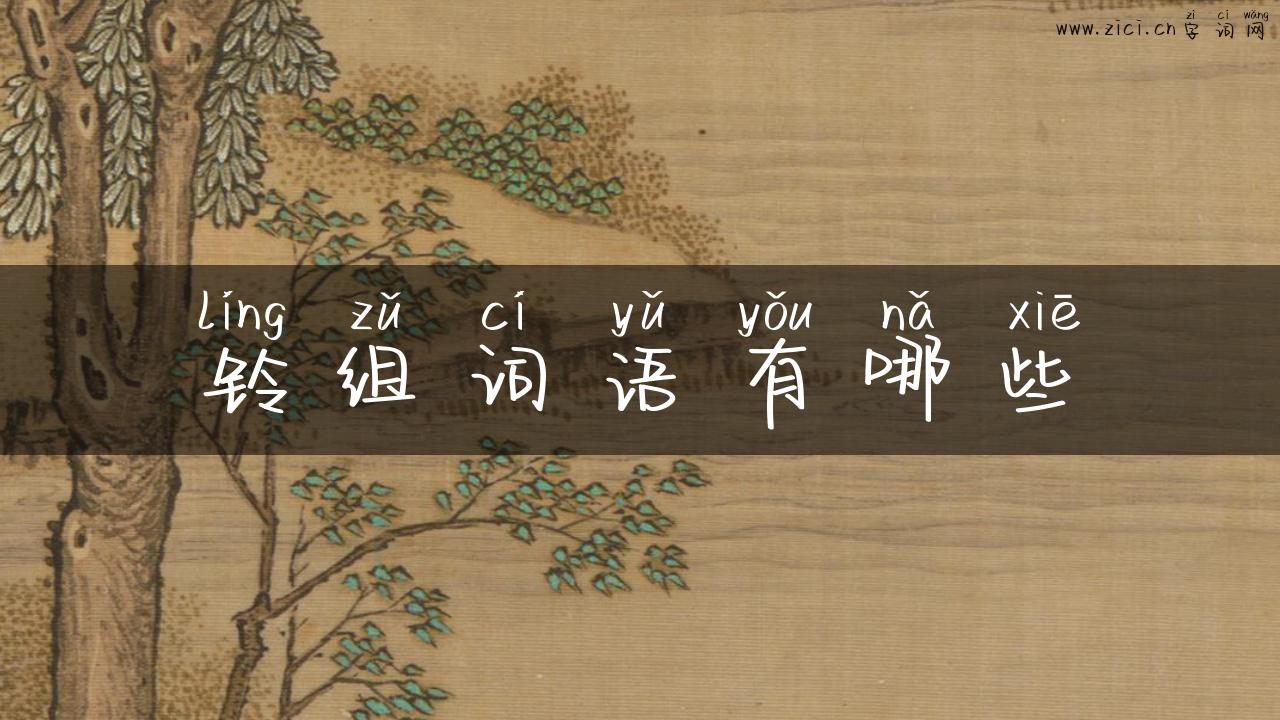 zì cí wǎng
www.zici.cn 字 词 网
líng zǔ cí yǔ yǒu nǎ xiē
铃 组 词 语 有 哪 些